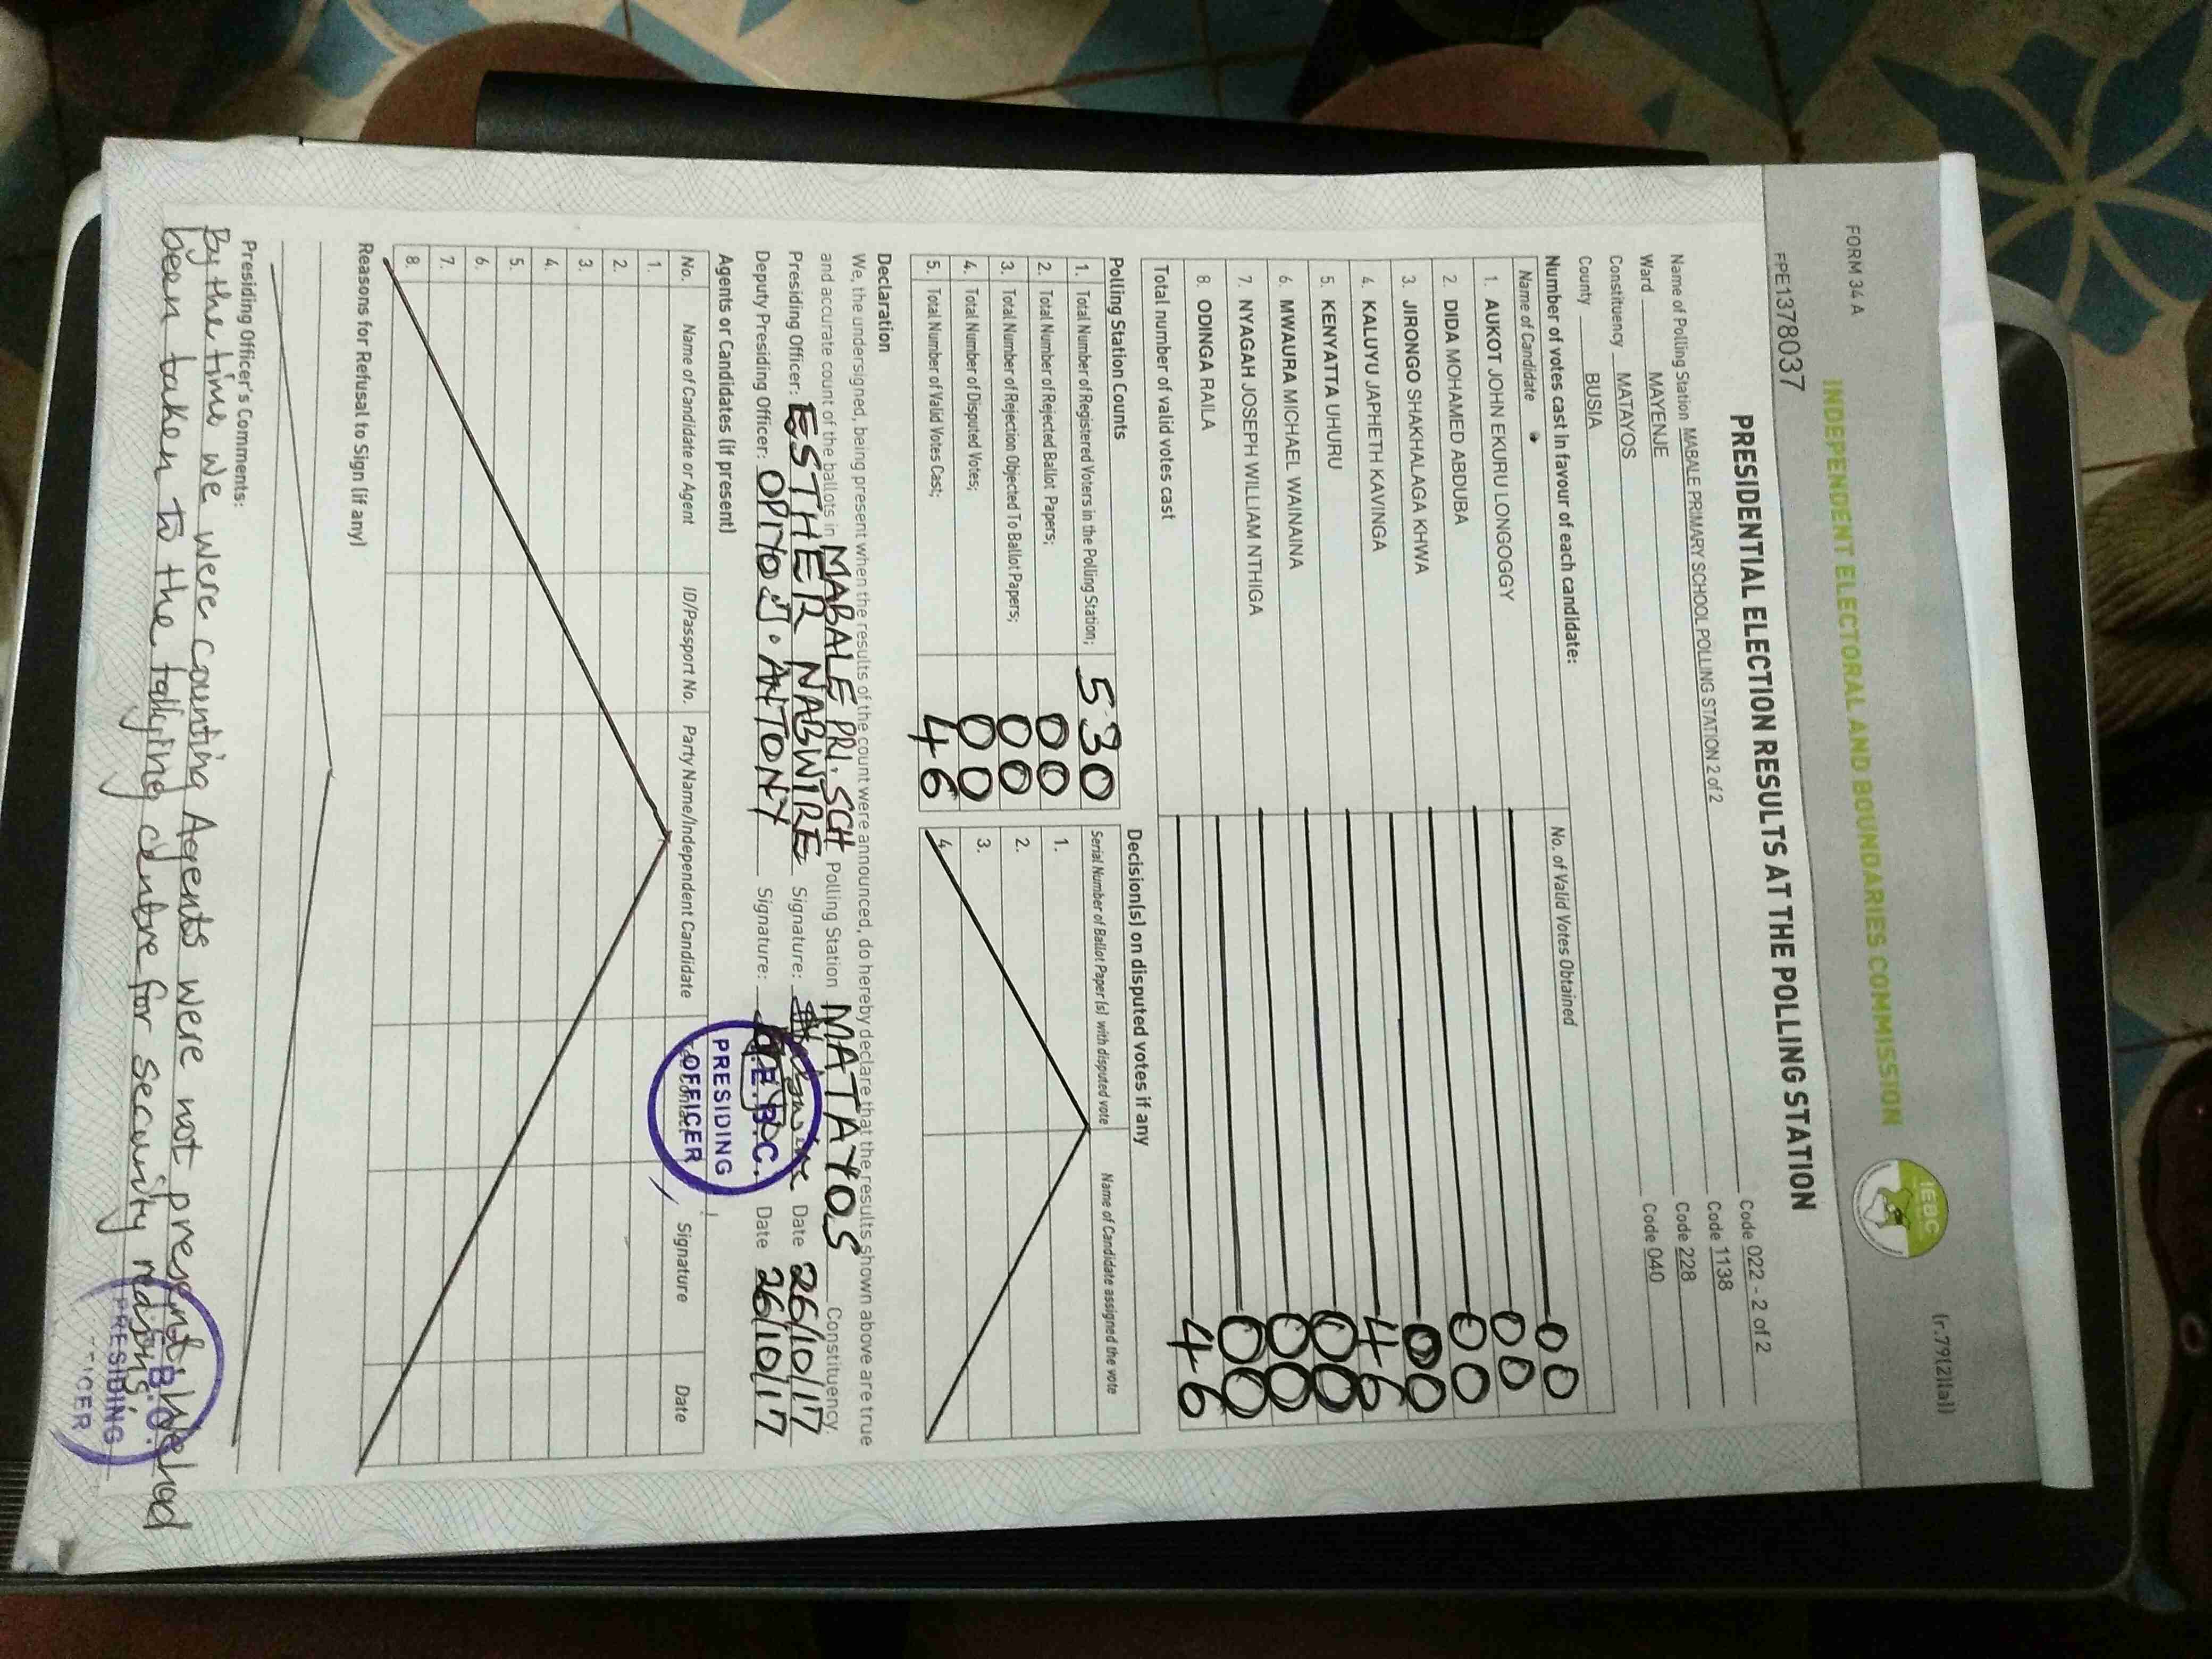 FORM 34 A
(r.79(2)(a))
INDEPENDENT ELECTORAL AND BOUNDARIES COMMISSION
IEBC
FPE1378037
PRESIDENTIAL ELECTION RESULTS AT THE POLLING STATION
Name of Polling Station MABALE PRIMARY SCHOOL POLLING STATION 2 of 2 Code 022 - 2 of 2
Ward MAYENJE Code 1138
Constituency MATAYOS Code 228
County BUSIA Code 040
Number of votes cast in favour of each candidate:
Name of Candidate No. of Valid Votes Obtained
1. AUKOT JOHN EKURU LONGOGGY 00
2. DIDA MOHAMED ABDUBA 00
3. JIRONGO SHAKHALAGA KHWA 00
4. KALUYU JAPHETH KAVINGA 00
5. KENYATTA UHURU 46
6. MWAURA MICHAEL WAINAINA 00
7. NYAGAH JOSEPH WILLIAM NTHIGA 00
8. ODINGA RAILA 00
Total number of valid votes cast 46
Polling Station Counts
1. Total Number of Registered Voters in the Polling Station; 530
2. Total Number of Rejected Ballot Papers; 00
3. Total Number of Rejection Objected To Ballot Papers; 00
4. Total Number of Disputed Votes; 00
5. Total Number of Valid Votes Cast; 46
Decision(s) on disputed votes if any
Serial Number of Ballot Paper (s) with disputed vote Name of Candidate assigned the vote
1.
2.
3.
4.
Declaration
We, the undersigned, being present when the results of the count were announced, do hereby declare that the results shown above are true
and accurate count of the ballots in MABALE PRI. SCH Polling Station MATAYOS Constituency.
Presiding Officer: ESTHER NABWIRE Signature: Date 26/10/17
Deputy Presiding Officer: OPIYO J. ANTONY Signature: Date 26/10/17
PRESIDING
OFFICER
Agents or Candidates (if present)
No. Name of Candidate or Agent ID/Passport No. Party Name/Independent Candidate Contact Signature Date
1.
2.
3.
4.
5.
6.
7.
8.
Reasons for Refusal to Sign (if any)
Presiding Officer's Comments:
By the time we were counting Agents were not present, we had
been taken to the tallying centre for security reasons.
PRESIDING